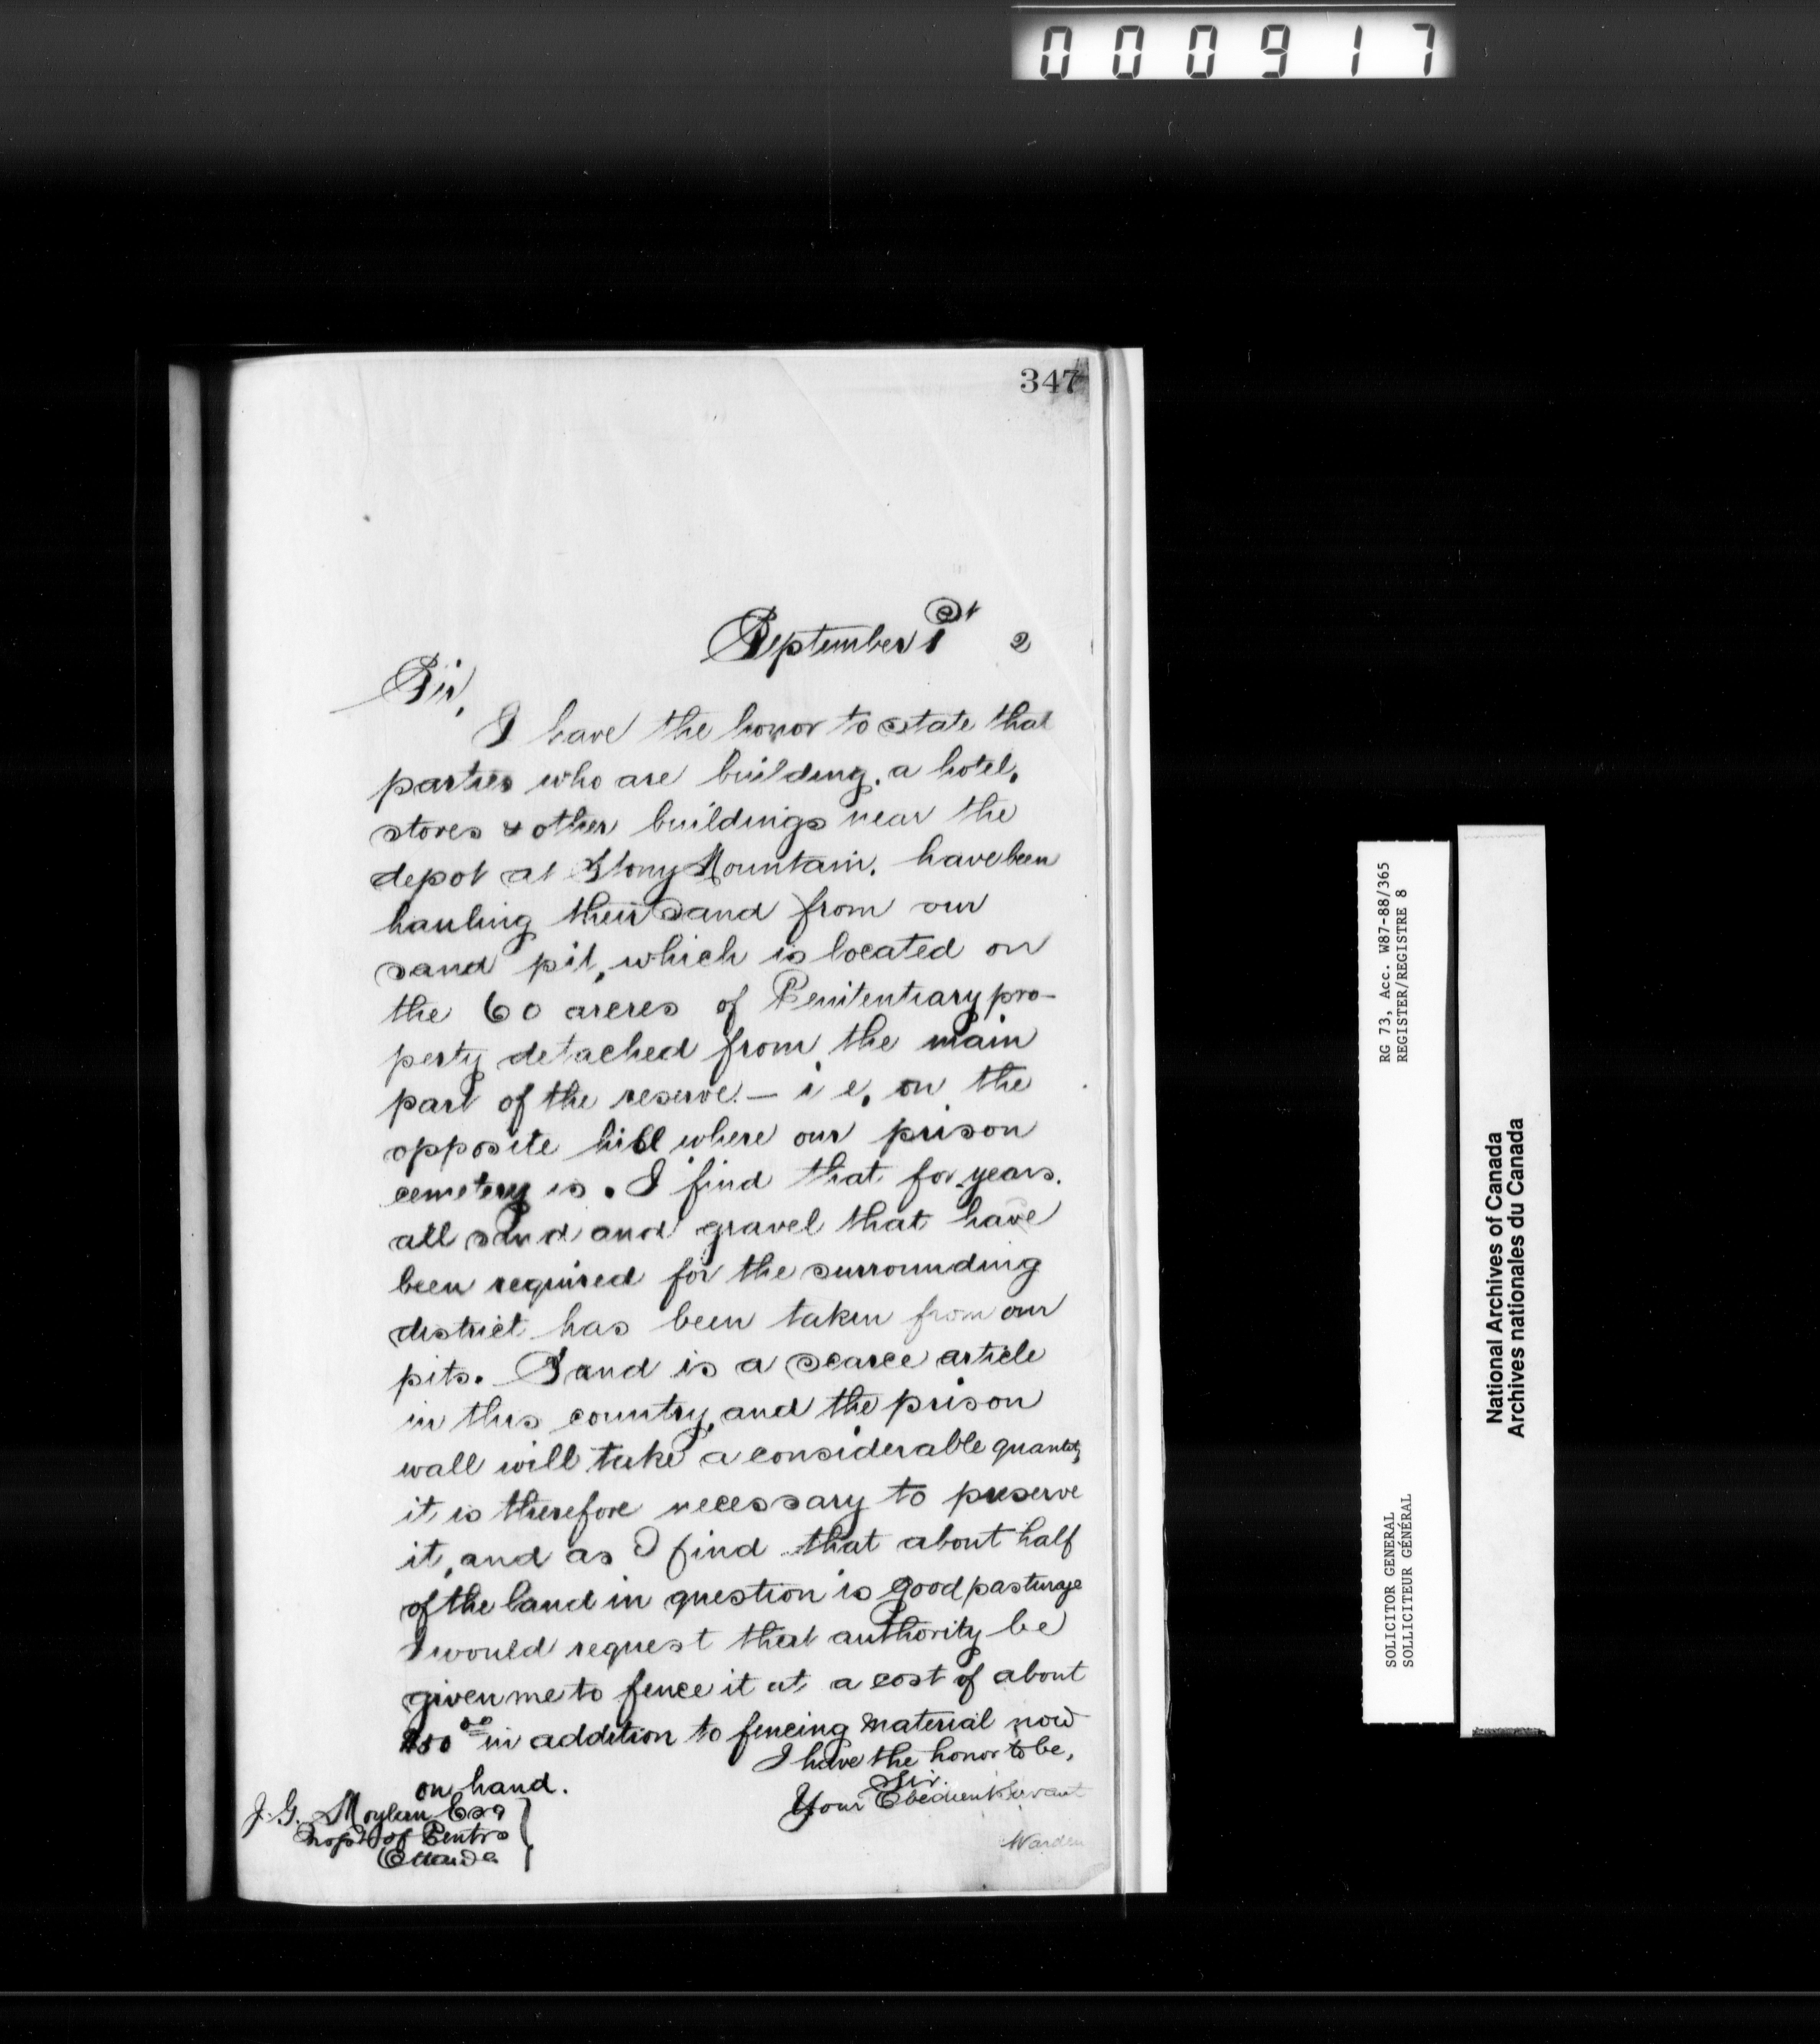 000917
347
September 1st 2
Sir,
I have the honor to state that
parties who are building, a hotel,
stores & other buildings near the
depot at Stony Mountain, have been
hauling their sand from our
sand pit, which is located on
the 60 acres of Penitentiary pro-
perty detached from the main
part of the reserve – i e, on the
opposite hill where our prison
cemetery is. I find that for years.
all sand and gravel that have
been required for the surrounding
district has been taken from our
pits. Sand is a scarce article
in this country, and the prison
wall will take a considerable quantity
it is therefore necessary to preserve
it, and as I find that about half
of the land in question is good pasturage
I would request that authority be
given me to fence it at a cost of about
$50.00 in addition to fencing material now
on hand.
I have the honor to be,
Sir.
Your Obedient Servant
Warden
J. G. Moylan Esq
Insptr of Pentrs
Ottawa
RG 73, Acc. W87-88/365
REGISTER/REGISTRE 8
SOLICITOR GENERAL
SOLLICITEUR GÉNÉRAL
National Archives of Canada
Archives nationales du Canada